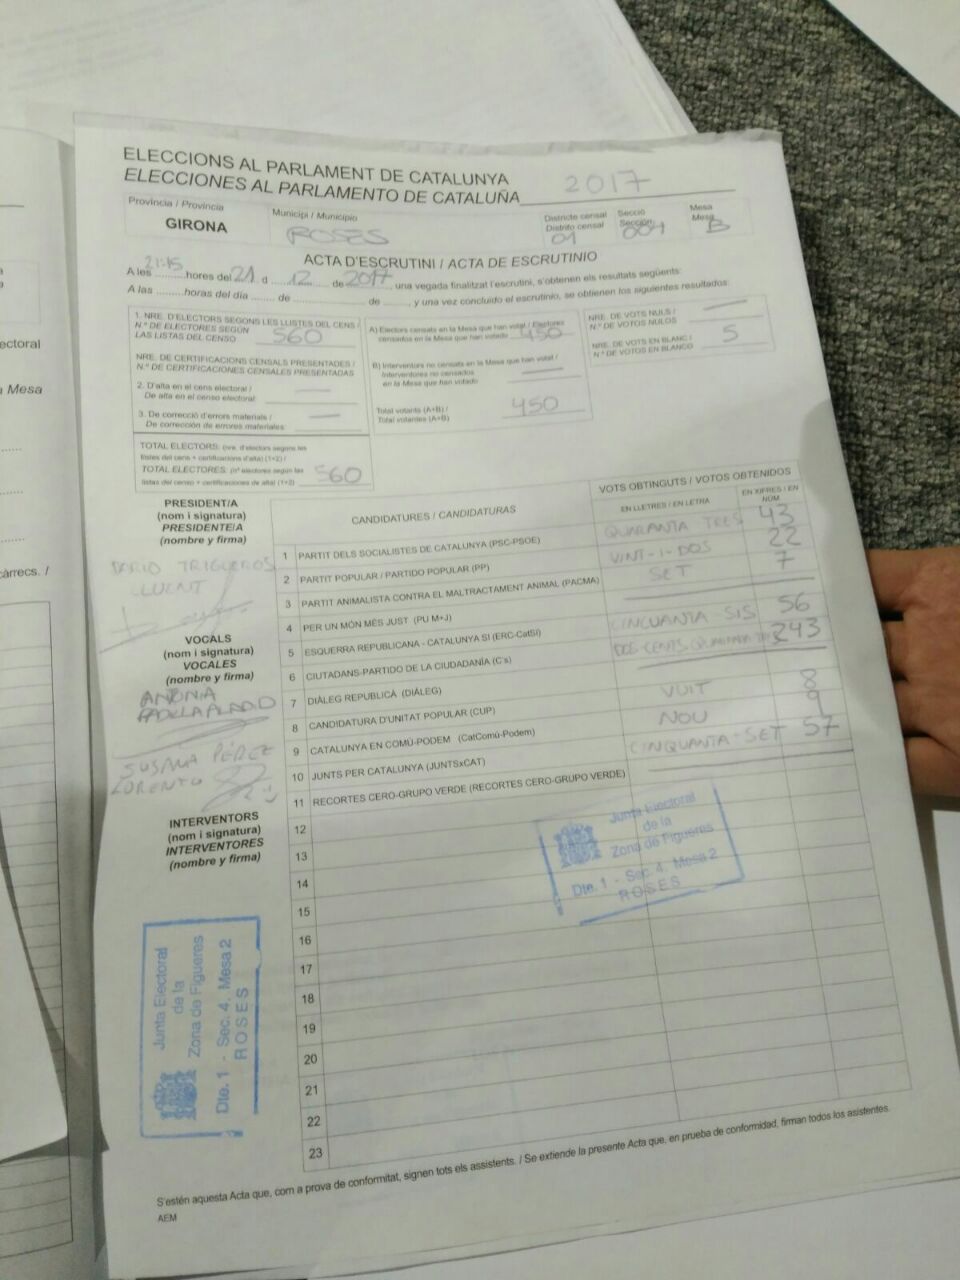 ELECCIONS AL PARLAMENT DE CATALUNYA
ELECCIONES AL PARLAMENTO DE CATALUÑA 2017
Província / Provincia
GIRONA
Municipi / Municipio
ROSES
Districte censal
Distrito censal
01
Secció
Sección
004
Mesa
Mesa
B
ACTA D'ESCRUTINI / ACTA DE ESCRUTINIO
A les 21:15 hores del 21 d 12 de 2017, una vegada finalitzat l'escrutini, s'obtenen els resultats següents:
A las ......... horas del día ....... de ............... de ......., y una vez concluido el escrutinio, se obtienen los siguientes resultados:
1. NRE. D'ELECTORS SEGONS LES LLISTES DEL CENS /
N.º DE ELECTORES SEGÚN
LAS LISTAS DEL CENSO 560
NRE. DE CERTIFICACIONS CENSALS PRESENTADES /
N.º DE CERTIFICACIONES CENSALES PRESENTADAS
2. D'alta en el cens electoral /
De alta en el censo electoral: —
3. De correcció d'errors materials /
De corrección de errores materiales: —
TOTAL ELECTORS: (nre. d'electors segons les
llistes del cens + certificacions d'alta) (1+2) /
TOTAL ELECTORES: (nº electores según las
listas del censo + certificaciones de alta) (1+2) 560
A) Electors censats en la Mesa que han votat / Electores
censados en la Mesa que han votado 450
B) Interventors no censats en la Mesa que han votat /
Interventores no censados
en la Mesa que han votado —
Total votants (A+B) /
Total votantes (A+B) 450
NRE. DE VOTS NULS /
N.º DE VOTOS NULOS —
NRE. DE VOTS EN BLANC /
N.º DE VOTOS EN BLANCO 5
PRESIDENT/A
(nom i signatura)
PRESIDENTE/A
(nombre y firma)
DARIO TRIGUEROS
LLUENT
VOCALS
(nom i signatura)
VOCALES
(nombre y firma)
ANTONIA
PADILLA
SUSANA PÉREZ
LORENTO
INTERVENTORS
(nom i signatura)
INTERVENTORES
(nombre y firma)
CANDIDATURES / CANDIDATURAS
VOTS OBTINGUTS / VOTOS OBTENIDOS
EN LLETRES / EN LETRA
EN XIFRES / EN NÚM.
1 PARTIT DELS SOCIALISTES DE CATALUNYA (PSC-PSOE) QUARANTA TRES 43
2 PARTIT POPULAR / PARTIDO POPULAR (PP) VINT-I-DOS 22
3 PARTIT ANIMALISTA CONTRA EL MALTRACTAMENT ANIMAL (PACMA) SET 7
4 PER UN MÓN MÉS JUST (PU M+J)
5 ESQUERRA REPUBLICANA - CATALUNYA SÍ (ERC-CatSí) CINCUANTA-SIS 56
6 CIUTADANS-PARTIDO DE LA CIUDADANÍA (C's) DOS-CENTS-QUARANTA TRES 243
7 DIÀLEG REPUBLICÀ (DIÀLEG)
8 CANDIDATURA D'UNITAT POPULAR (CUP) VUIT 8
9 CATALUNYA EN COMÚ-PODEM (CatComú-Podem) NOU 9
10 JUNTS PER CATALUNYA (JUNTSxCAT) CINQUANTA-SET 57
11 RECORTES CERO-GRUPO VERDE (RECORTES CERO-GRUPO VERDE)
12
13
14
15
16
17
18
19
20
21
22
23
Junta Electoral
de la
Zona de Figueres
Dte. 1 - Sec. 4. Mesa 2
ROSES
Junta Electoral
de la
Zona de Figueres
Dte. 1 - Sec. 4. Mesa 2
ROSES
S'estén aquesta Acta que, com a prova de conformitat, signen tots els assistents. / Se extiende la presente Acta que, en prueba de conformidad, firman todos los asistentes.
AEM
ectoral
Mesa
càrrecs. /